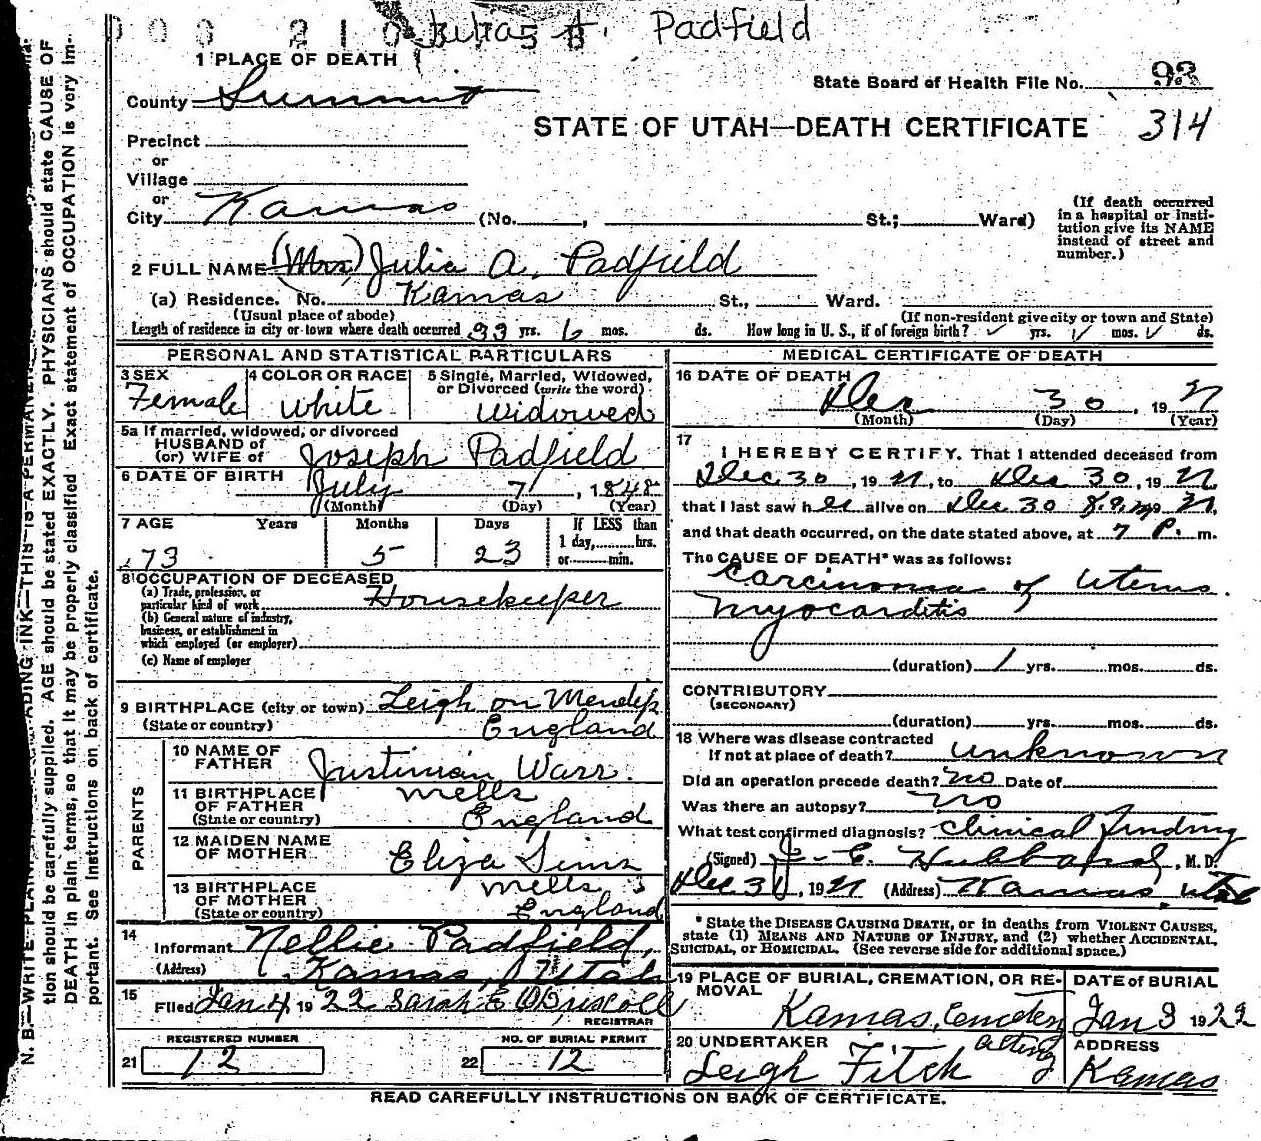 Julia A. Padfield
1 PLACE OF DEATH
State Board of Health File No. 93
County Summit
STATE OF UTAH—DEATH CERTIFICATE 314
Precinct
or
Village
or
City Kamas (No. , St.; Ward)
(If death occurred
in a hospital or insti-
tution give its NAME
instead of street and
number.)
2 FULL NAME (Mrs) Julia A. Padfield
(a) Residence. No. Kamas St., Ward.
(Usual place of abode) (If non-resident give city or town and State)
Length of residence in city or town where death occurred 33 yrs. 6 mos. ds. How long in U. S., if of foreign birth? ✓ yrs. ✓ mos. ✓ ds.
PERSONAL AND STATISTICAL PARTICULARS
3 SEX Female
4 COLOR OR RACE White
5 Single, Married, Widowed,
or Divorced (write the word)
Widowed
5a If married, widowed, or divorced
HUSBAND of
(or) WIFE of Joseph Padfield
6 DATE OF BIRTH July 7, 1848
(Month) (Day) (Year)
7 AGE Years Months Days If LESS than
1 day, hrs.
or min.
73 5 23
8 OCCUPATION OF DECEASED
(a) Trade, profession, or
particular kind of work Housekeeper
(b) General nature of industry,
business, or establishment in
which employed (or employer)
(c) Name of employer
9 BIRTHPLACE (city or town) Leigh on Mendip
(State or country) England
PARENTS
10 NAME OF
FATHER Justinian Warr.
11 BIRTHPLACE
OF FATHER Mells
(State or country) England
12 MAIDEN NAME
OF MOTHER Eliza Sims
13 BIRTHPLACE
OF MOTHER Mells
(State or country) England
14 Informant Nellie Padfield,
(Address) Kamas, Utah
15 Filed Jan 4, 1922 Sarah E O'Driscoll
REGISTRAR
REGISTERED NUMBER
21 12
NO. OF BURIAL PERMIT
22 12
MEDICAL CERTIFICATE OF DEATH
16 DATE OF DEATH
Dec 30, 19 21
(Month) (Day) (Year)
17
I HEREBY CERTIFY. That I attended deceased from
Dec 30, 19 21, to Dec 30, 19 21,
that I last saw her alive on Dec 30 21,
and that death occurred, on the date stated above, at 7 P. m.
The CAUSE OF DEATH* was as follows:
Carcinoma of Uterus.
Myocarditis
(duration) 1 yrs. mos. ds.
CONTRIBUTORY
(SECONDARY)
(duration) yrs. mos. ds.
18 Where was disease contracted
If not at place of death? unknown
Did an operation precede death? no Date of
Was there an autopsy? no
What test confirmed diagnosis? Clinical finding
(Signed) J. E. Hubbard, M. D.
Dec 31, 19 21 (Address) Kamas, Utah
* State the DISEASE CAUSING DEATH, or in deaths from VIOLENT CAUSES,
state (1) MEANS AND NATURE OF INJURY, and (2) whether ACCIDENTAL,
SUICIDAL, or HOMICIDAL. (See reverse side for additional space.)
19 PLACE OF BURIAL, CREMATION, OR RE-
MOVAL
Kamas, Cemetery
DATE of BURIAL
Jan 3 1922
20 UNDERTAKER
Leigh Fitch acting
ADDRESS
Kamas
READ CAREFULLY INSTRUCTIONS ON BACK OF CERTIFICATE.
tion should be carefully supplied. AGE should be stated EXACTLY. PHYSICIANS should state CAUSE OF
DEATH in plain terms, so that it may be properly classified. Exact statement of OCCUPATION is very im-
portant. See instructions on back of certificate.